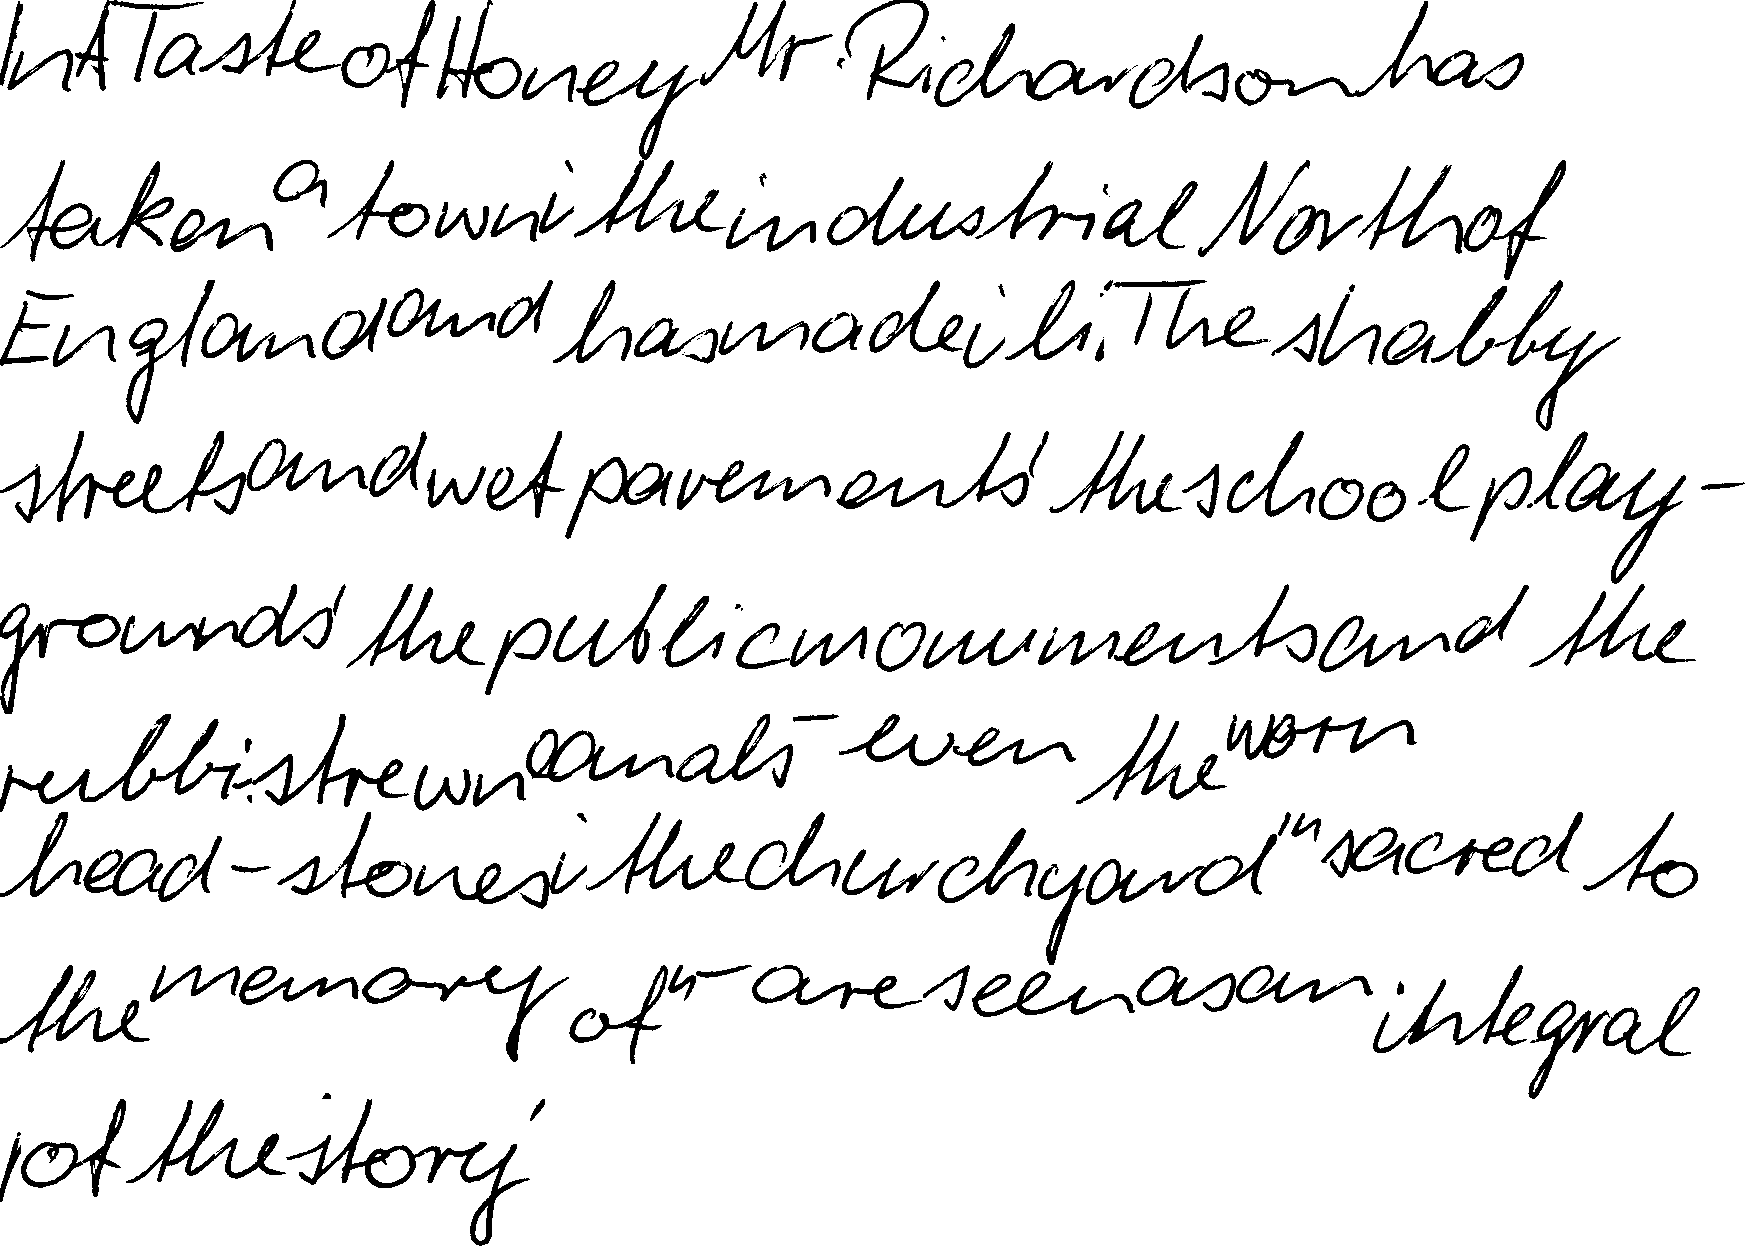 In A Taste of Honey Mr. Richardson has
taken a town i the industrial North of
England and has made it li. The shabby
streets and wet pavements, the school play-
grounds, the public monuments and the
rubbi. strewn canals - even the worn
head-stones i the churchyard "sacred to
the memory of" - are seen as an integral
p of the story,